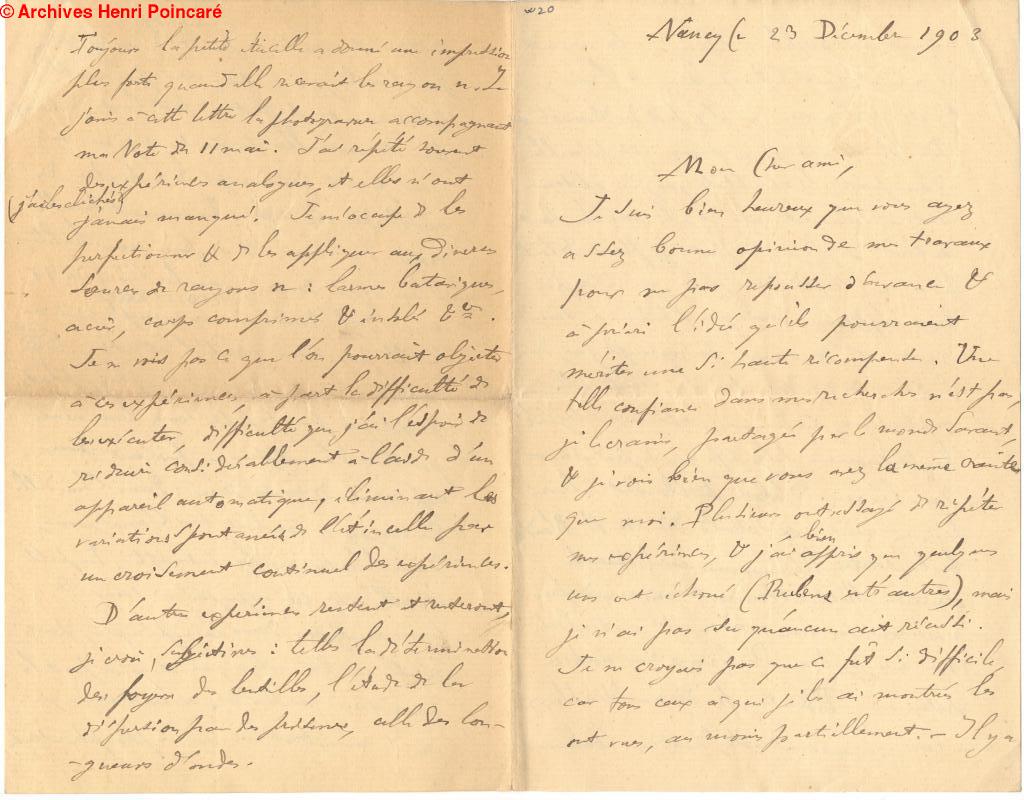 © Archives Henri Poincaré
Nancy le 23 Décembre 1903
Mon Cher ami,
Je suis bien heureux que vous ayez
assez bonne opinion de mes travaux
pour ne pas repousser d'avance &
à priori l'idée qu'ils pourraient
mériter une si haute récompense. Une
telle confiance dans mes recherches n'est pas,
je le crains, partagée par le monde savant,
& je vois bien que vous avez la même crainte
que moi. Plusieurs ont essayé de répéter
mes expériences, & j'ai bien appris que quelques
uns ont échoué (Rubens entr'autres), mais
je n'ai pas su qu'aucun ait réussi.
Je ne croyais pas que ce fût si difficile,
car tous ceux à qui je les ai montrées les
ont vues, au moins partiellement. – Il y a
Toujours la petite étincelle a donné une impression
plus forte quand elle recevait les rayons n. Je
joins à cette lettre la photogravure accompagnant
ma Note du 11 mai. J'ai répété souvent
des expériences analogues, et elles n'ont
(j'ai les clichés)
jamais manqué. Je m'occupe de les
perfectionner & de les appliquer aux diverses
sources de rayons n : larmes bataviques,
acier, corps comprimés & insolés &ca.
Je ne vois pas ce que l'on pourrait objecter
à ces expériences, à part la difficulté de
les exécuter, difficulté que j'ai l'espoir de
réduire considérablement à l'aide d'un
appareil automatique, éliminant les
variations spontanées de l'étincelle par
un croisement continuel des expériences.
D'autres expériences restent et resteront,
je crois, subjectives : telles la détermination
des foyers des lentilles, l'étude de la
dispersion par des prismes, celle des lon-
-gueurs d'ondes.